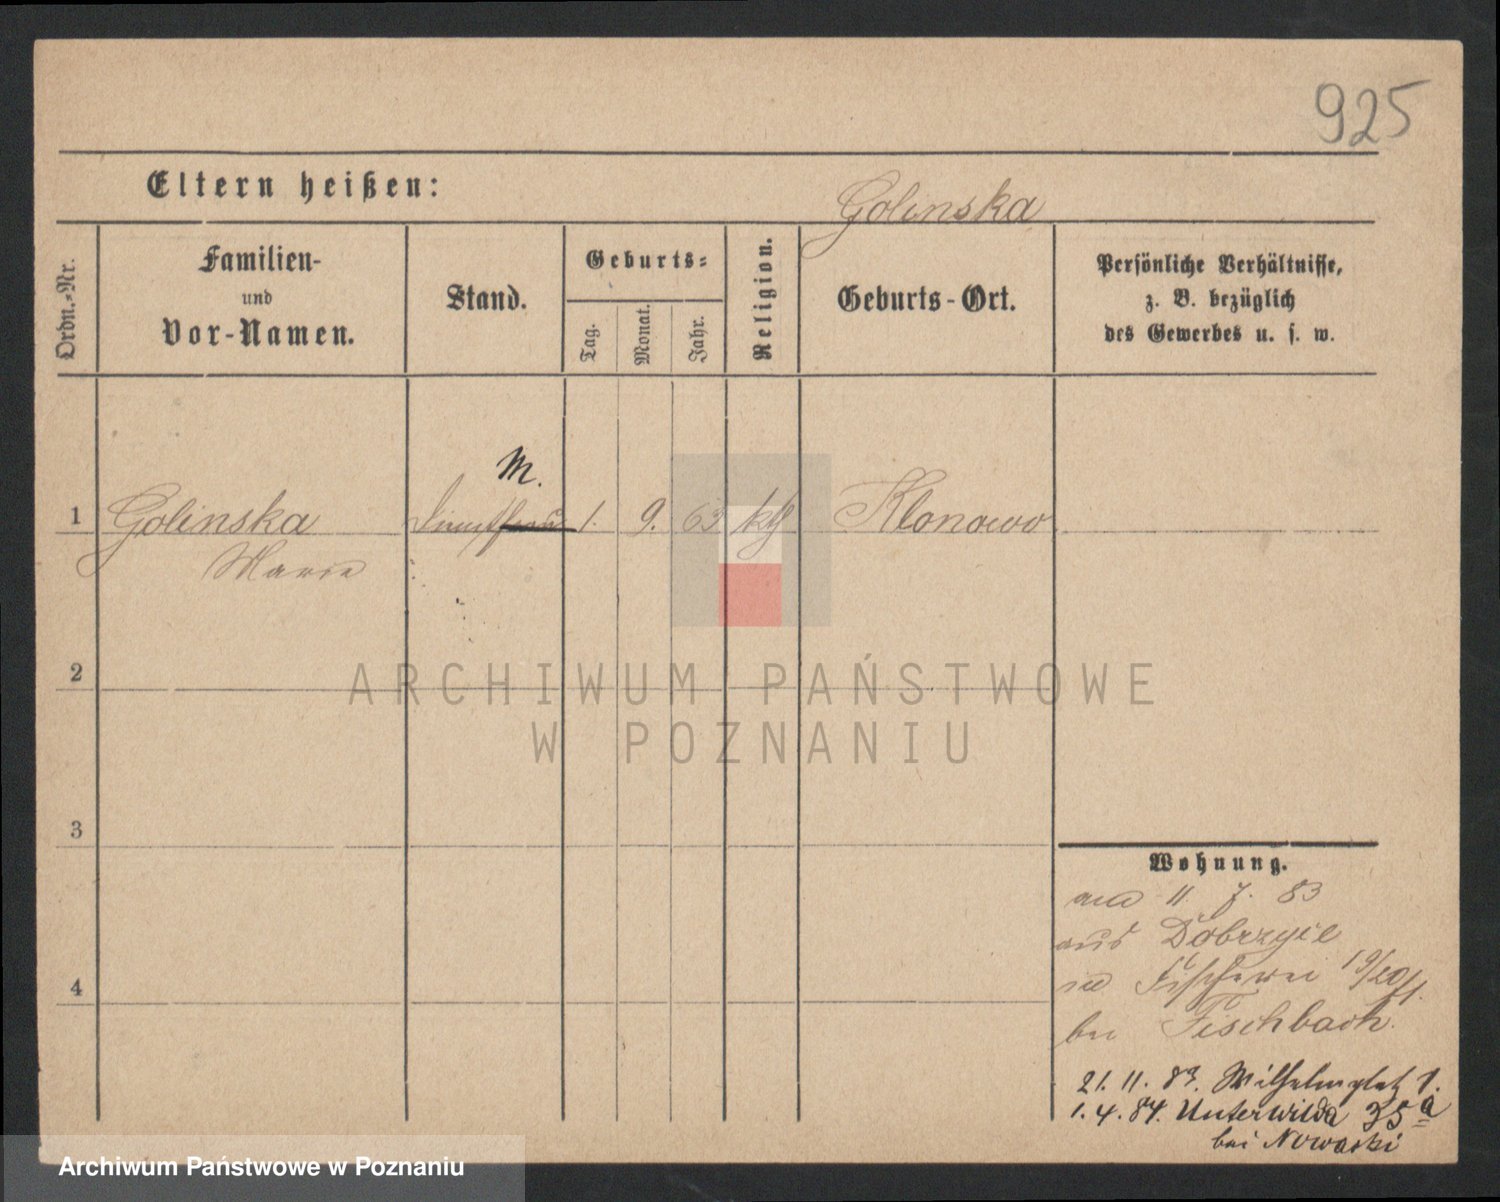 925
Eltern heißen:
Golinska
Ordn.-Nr.
Familien-
und
Vor-Namen.
Stand.
Geburts-
Tag.
Monat.
Jahr.
Religion.
Geburts-Ort.
Persönliche Verhältnisse,
z. B. bezüglich
des Gewerbes u. s. w.
M.
1 Golinska 1. 9. 63 kth Klonowo
Marie
2
ARCHIWUM PAŃSTWOWE
W POZNANIU
3
4
Wohnung.
11. 7. 83
aus Dobrzyie
in Fischerei 19/20/1.
bei Fischbach.
21. 11. 83. Wilhelmplatz 1.
1. 4. 84. Unterwilda 35a
bei Nowacki
Archiwum Państwowe w Poznaniu